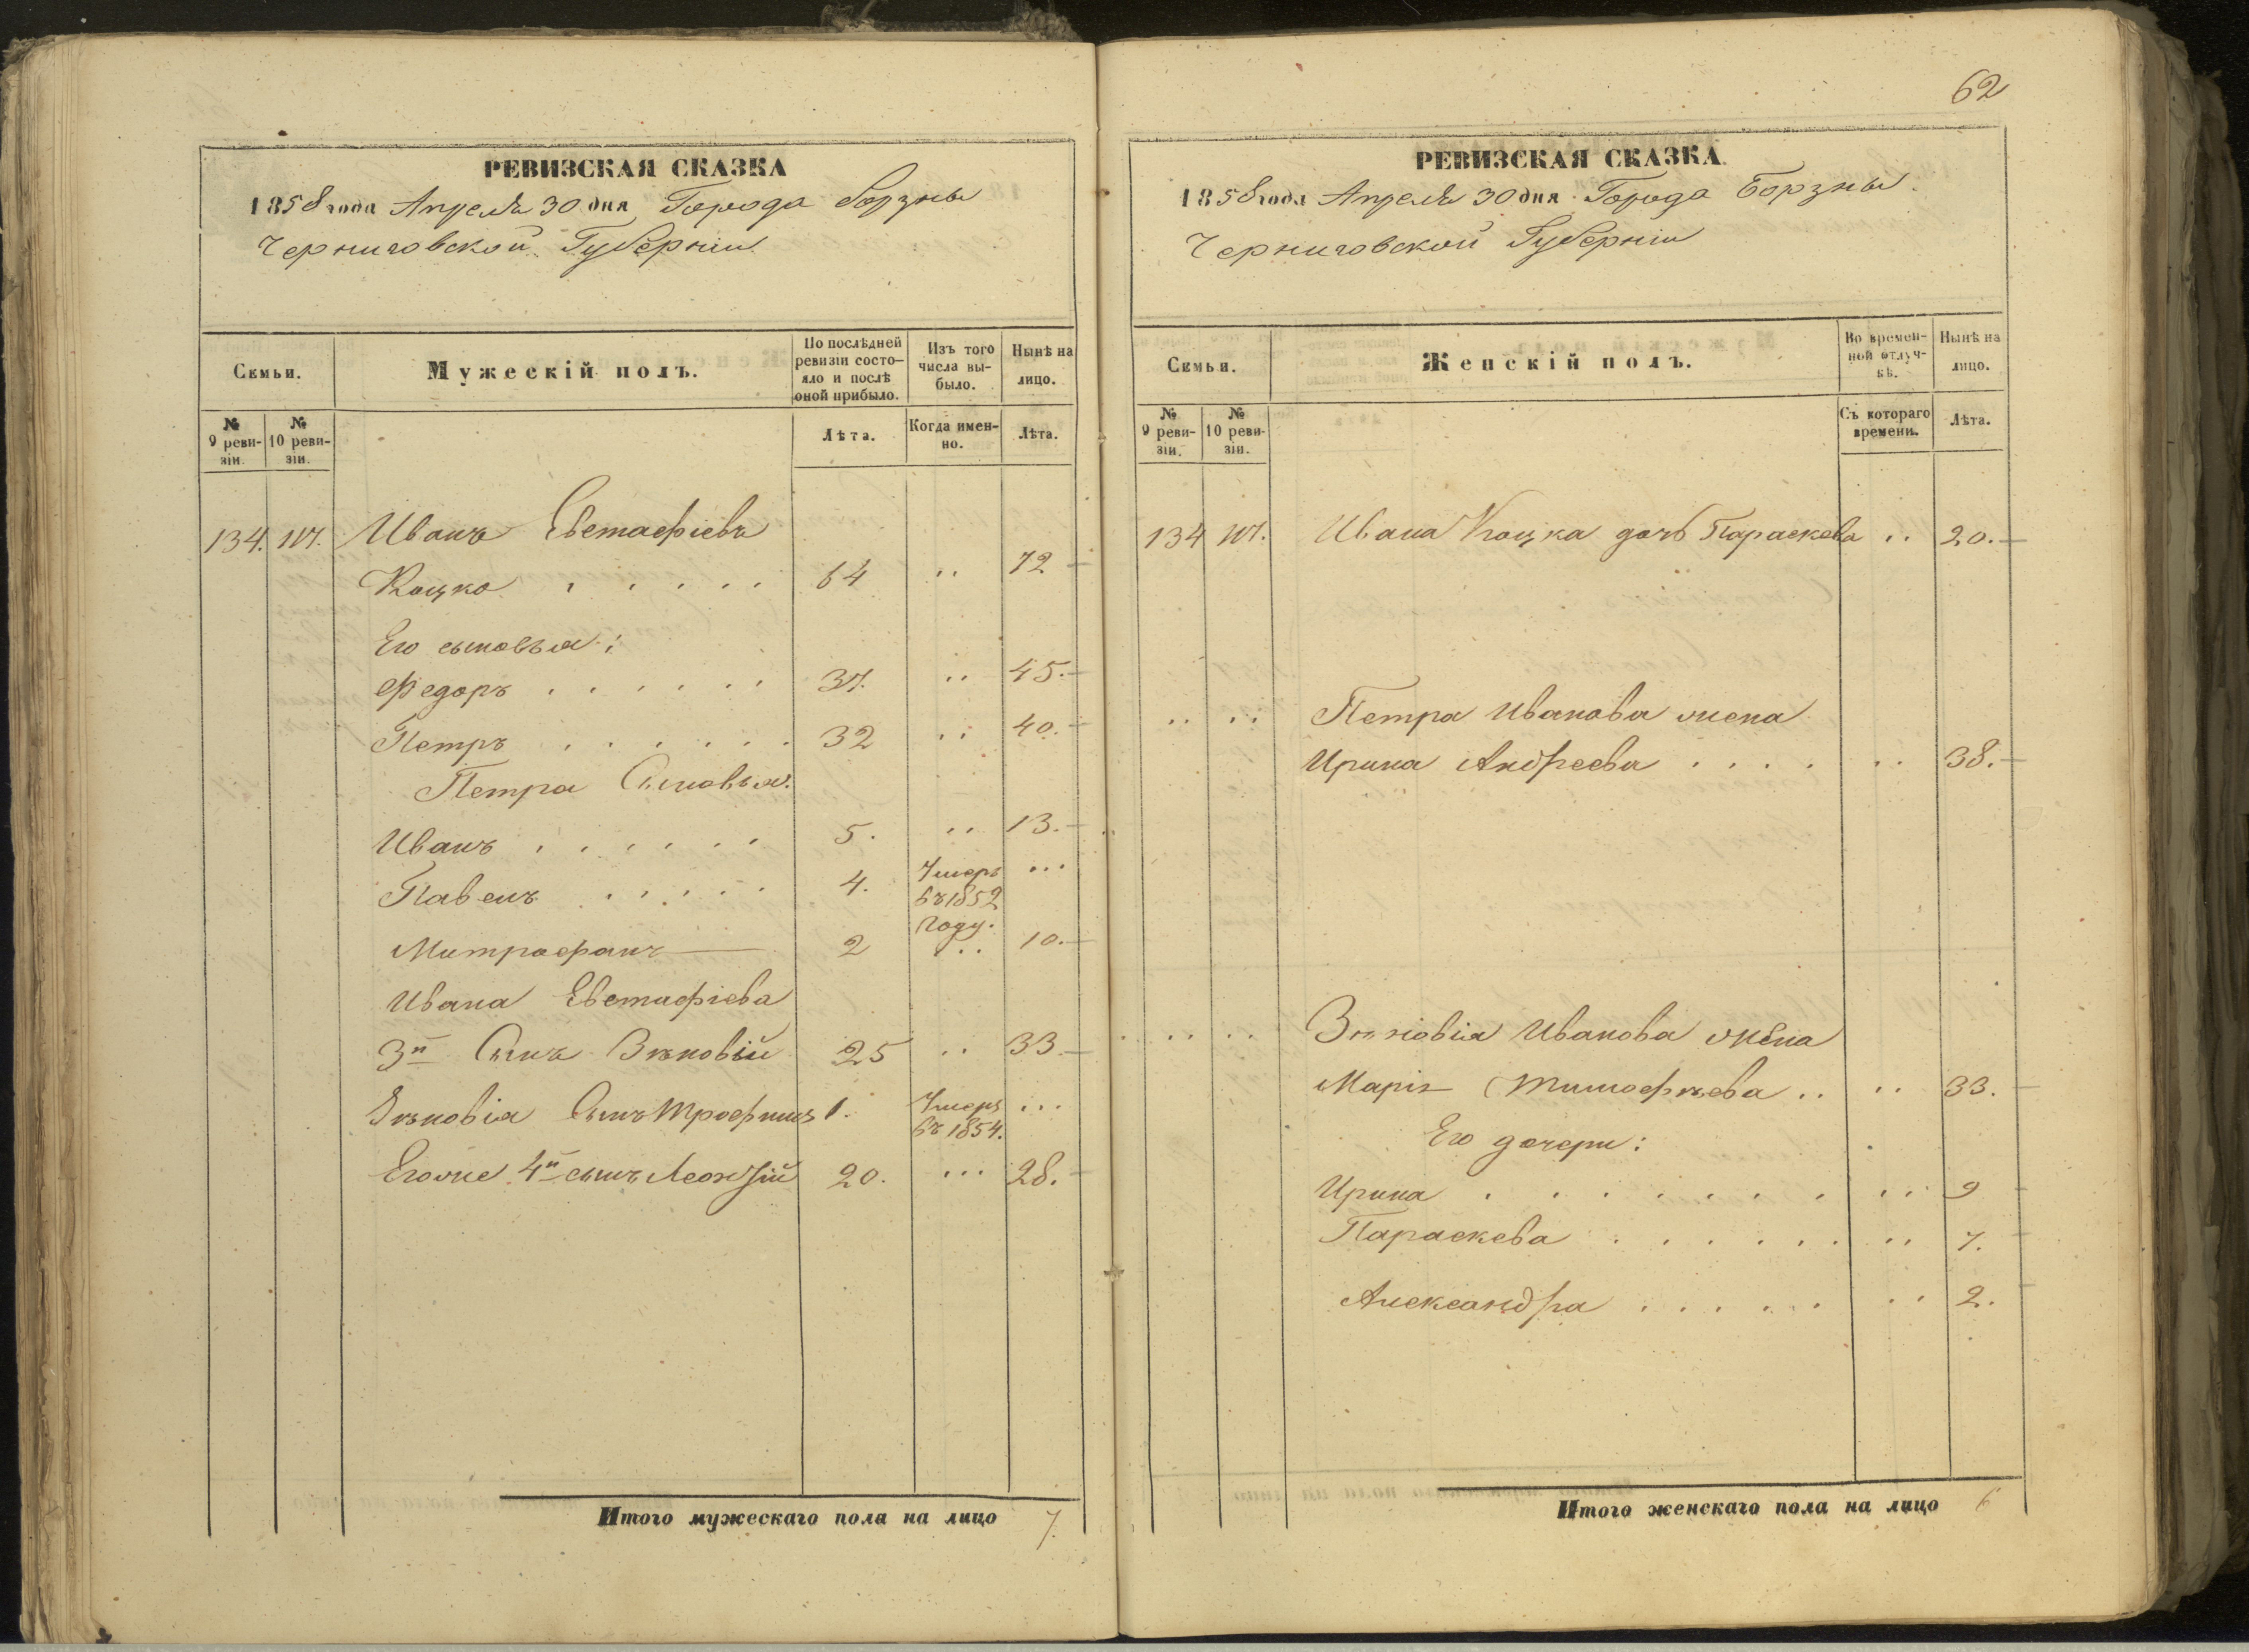 РЕВИЗСКАЯ СКАЗКА
1858 года Апреля 30 дня Города Борзны
Черниговской Губерніи
Семьи.
Мужескій полъ.
По послѣдней ревизіи состояло и послѣ оной прибыло.
Изъ того числа выбыло.
Нынѣ на лицо.
№ 9 ревизіи.
№ 10 ревизіи.
Лѣта.
Когда именно.
Лѣта.
134. 117. Иванъ Евстафіевъ
Коцко . . . . . 64 .. 72
Его сыновья:
Федоръ . . . . . . 37. .. 45.
Петръ . . . . . . 32 .. 40.
Петра Сыновья.
Иванъ . . . . . . 5. .. 13.
Павелъ . . . . . 4. Умеръ въ 1852 году. ...
Митрофанъ 2 .. 10.
Ивана Евстафіева
3й Сынъ Зѣновій 25 .. 33
Зѣновія Сынъ Трофимъ 1. Умеръ въ 1854. ...
Его же 4й сынъ Леонтій 20. ... 28.
Итого мужескаго пола на лицо 7.
62
РЕВИЗСКАЯ СКАЗКА.
1858 года Апреля 30 дня Города Борзны.
Черниговской Губерніи
Семьи.
Женскій полъ.
Во временной отлучкѣ.
Нынѣ на лицо.
№ 9 ревизіи.
№ 10 ревизіи.
Съ котораго времени.
Лѣта.
134 117. Ивана Коцка дочь Параскева .. 20.
.. .. Петра Иванова жена
Ирина Андреева . . . . .. 38.
.. .. Зѣновія Иванова жена
Марія Тимофѣева .. .. 33.
Его дочери:
Ирина . . . . . . . .. 9
Параскева . . . . . . .. 7.
Александра . . . . . .. 2.
Итого женскаго пола на лицо 6